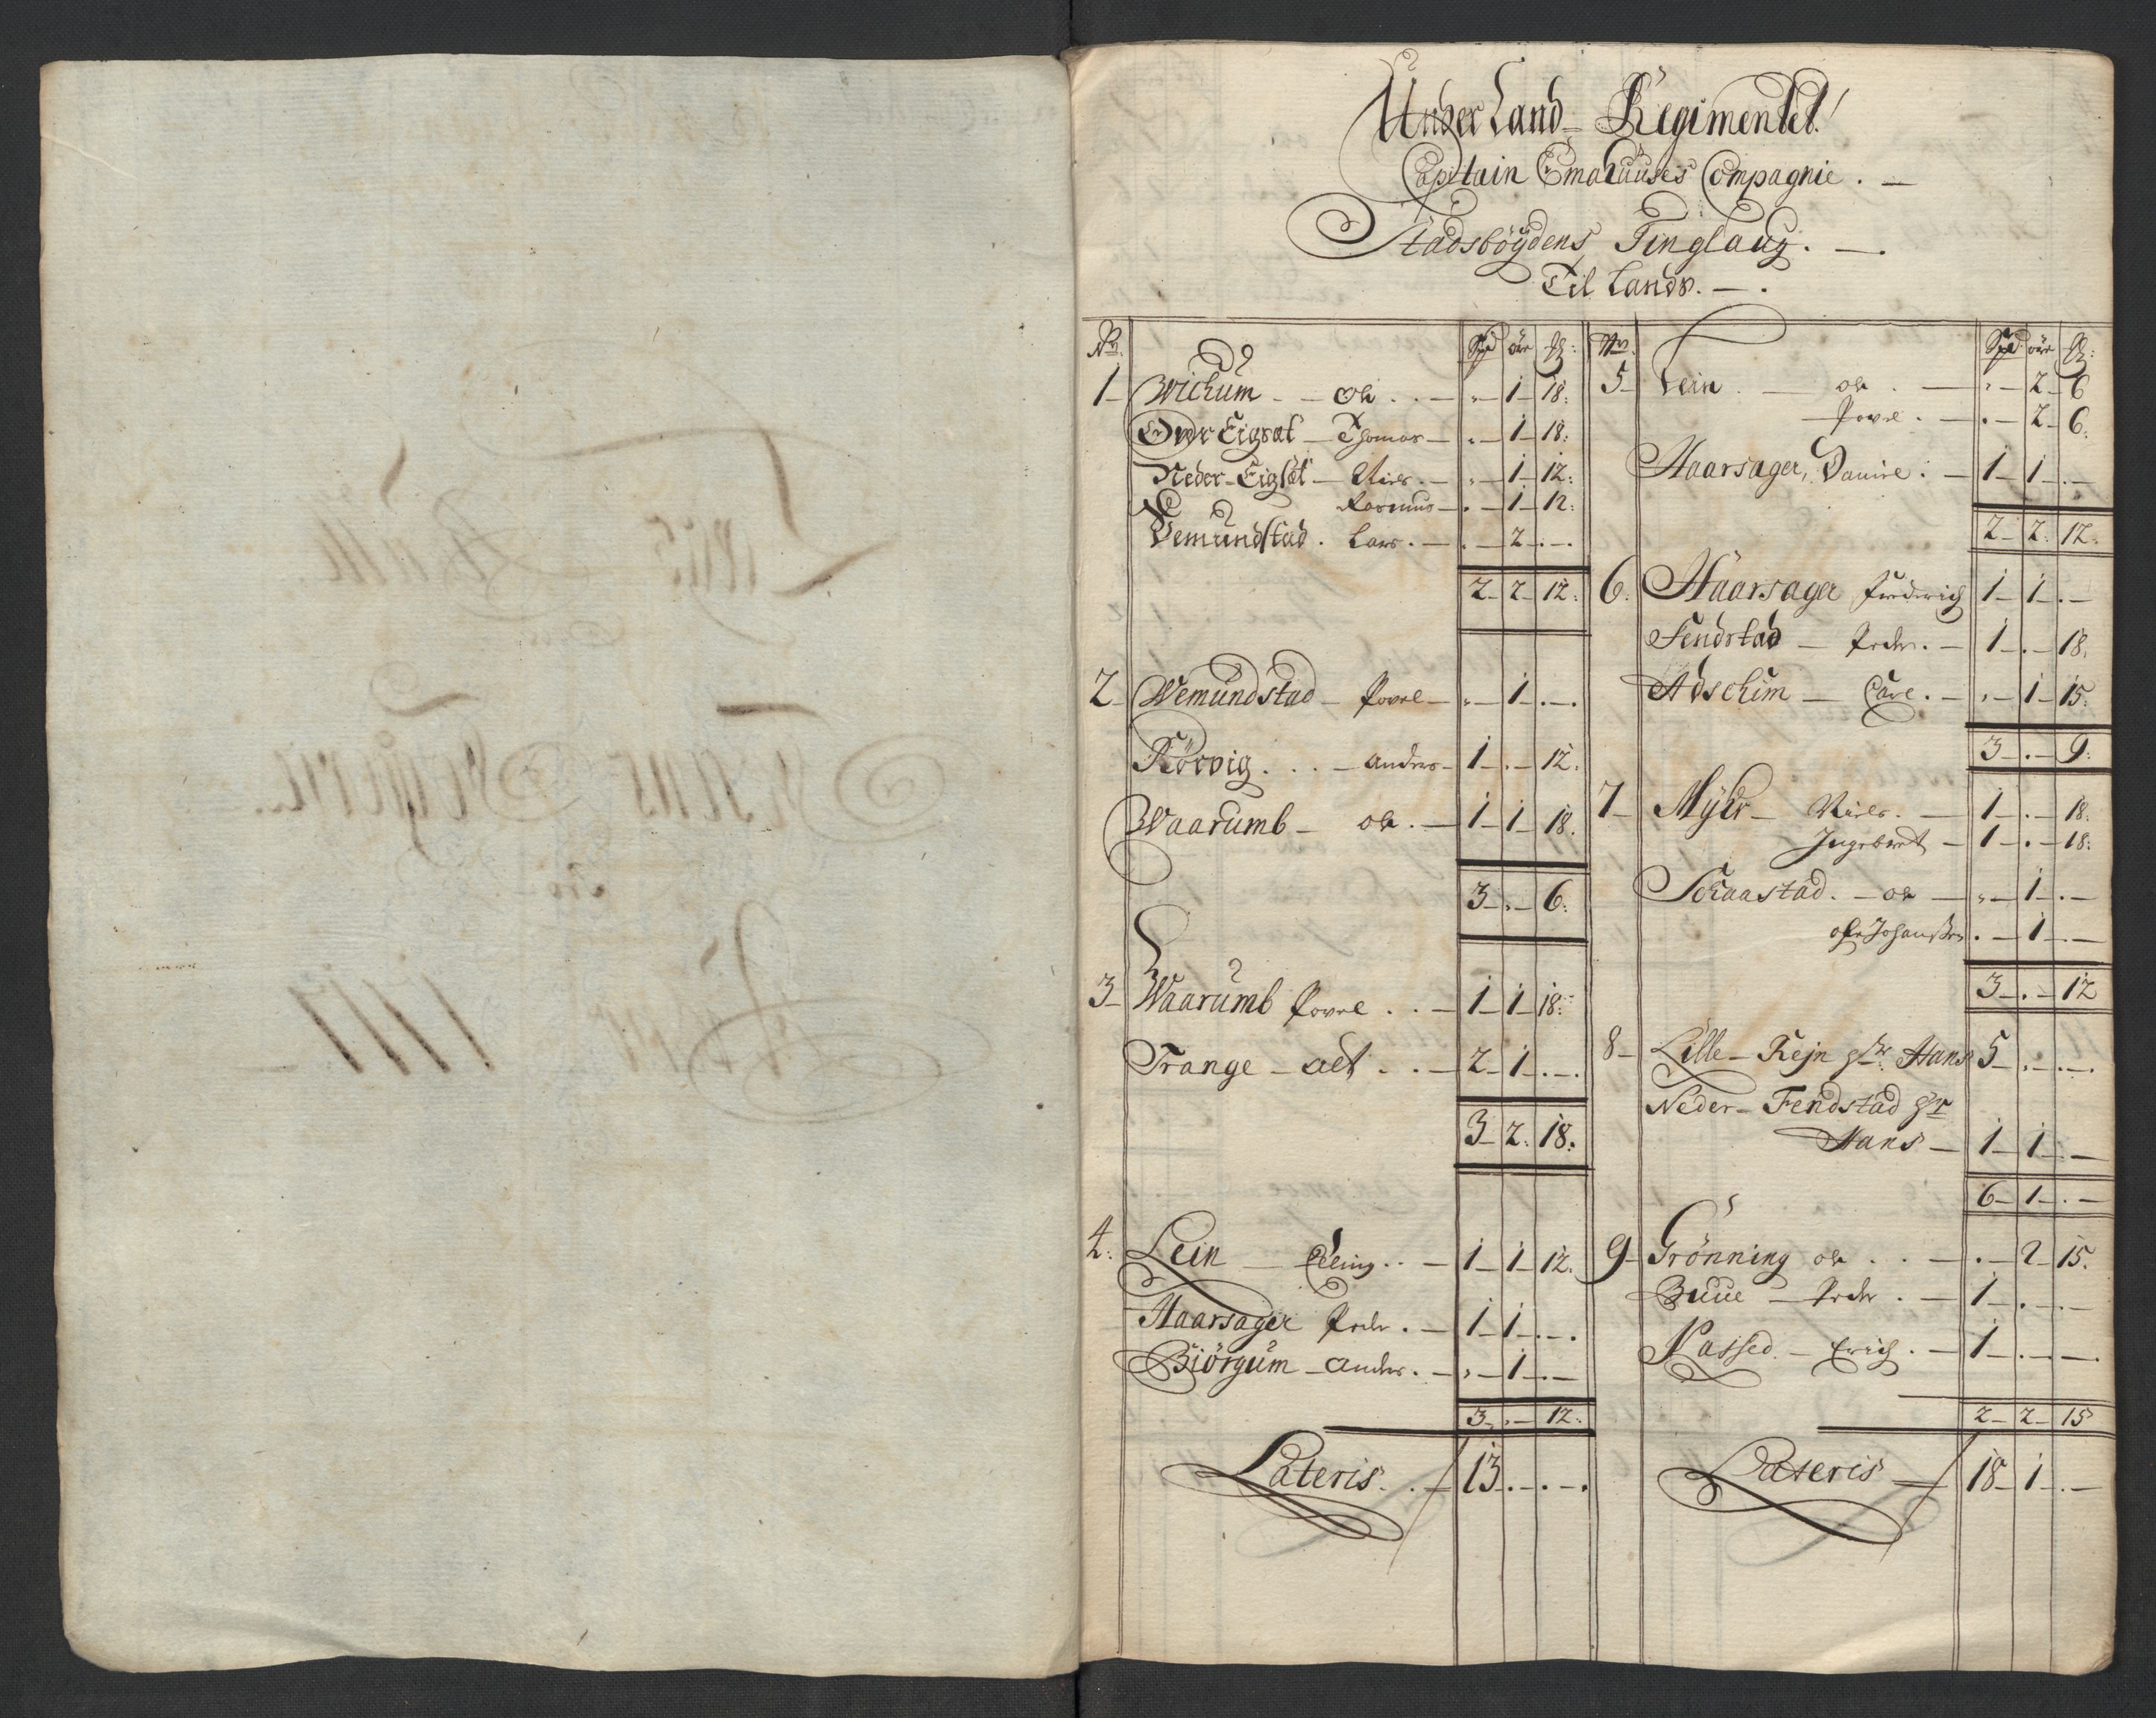 Under Land-Regimentet
Capitain Emahuuses Compagnie.
Stadsbøÿdens Tinglaug.
Til Lands.
No. Spd øre
1 Wichum Ole - 1 18
Øvr Eigsæt Thomas - 1 18
Neder-Eigsæt Niels - 1 12
Rasmus - 1 12
Vemundstad Lars - 2 -
2 2 12
2 Wemundstad Povel - 1 -
Rörvig Anders 1 - 12
Waarumb Ole 1 1 18
3 - 6
3 Waarumb Povel 1 1 18
Trange - alt 2 1 -
3 2 18
4 Lein Elling 1 1 12
Haarsager Peder 1 1 -
Biörgum Anders - 1 -
3 - 12
Lateris 13 - -
No. Spd øre
5 Lein Ole - 2 6
Povel - 2 6
Haarsager, Daniel 1 1 -
2 2 12
6 Haarsager Frederich 1 1 -
Fendstad Peder 1 - 18
Adscheim Carl - 1 15
3 - 9
7 Mÿhr Niels 1 - 18
Ingebret 1 - 18
Schaastad Ole - 1 -
Ole Johanßen - 1 -
3 - 12
8 Lille-Rejn Hans 5 - -
Neder-Fendstad
Hans 1 1 -
6 1 -
9 Grönning Ole - 2 15
Buue Peder 1 - -
Rassed Erich 1 - -
2 2 15
Lateris 18 1 -